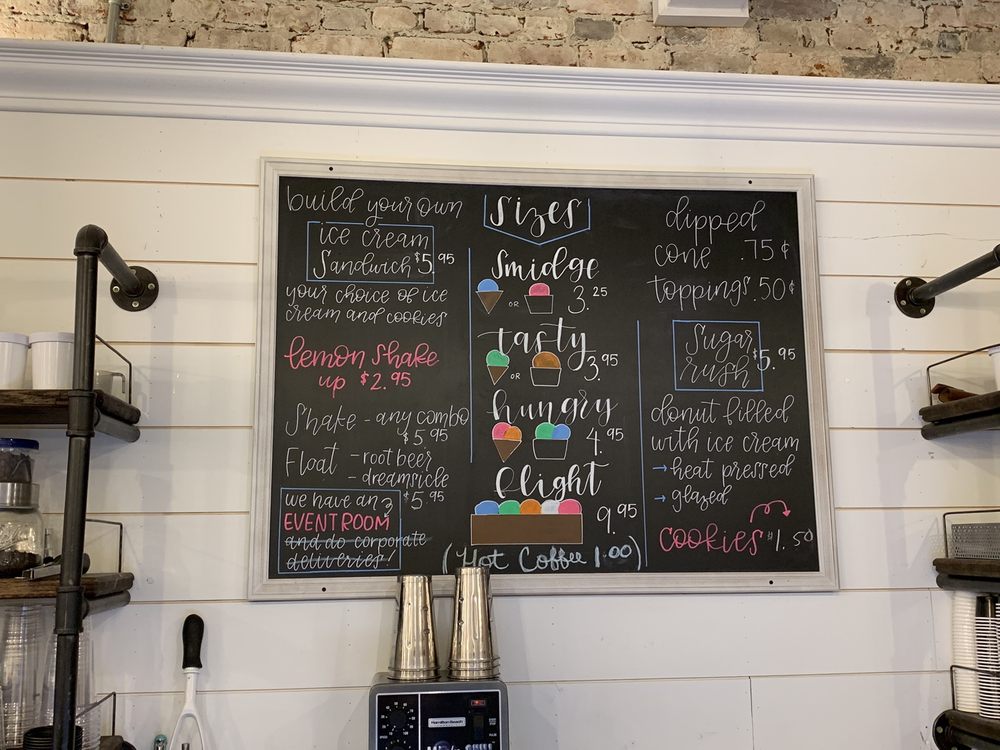 build your own
ice cream
Sandwich $5.95
your choice of ice
cream and cookies
lemon shake
up $2.95
Shake - any combo
$5.95
Float - root beer
- dreamsicle
$5.95
we have an
EVENT ROOM
and do corporate
deliveries!
Sizes
Smidge
OR 3.25
tasty
OR 3.95
hungry
4.95
Flight
9.95
(Hot Coffee 1.00)
dipped
cone .75¢
toppings .50¢
Sugar
rush $5.95
donut filled
with ice cream
→ heat pressed
→ glazed
Cookies $1.50
Hamilton Beach